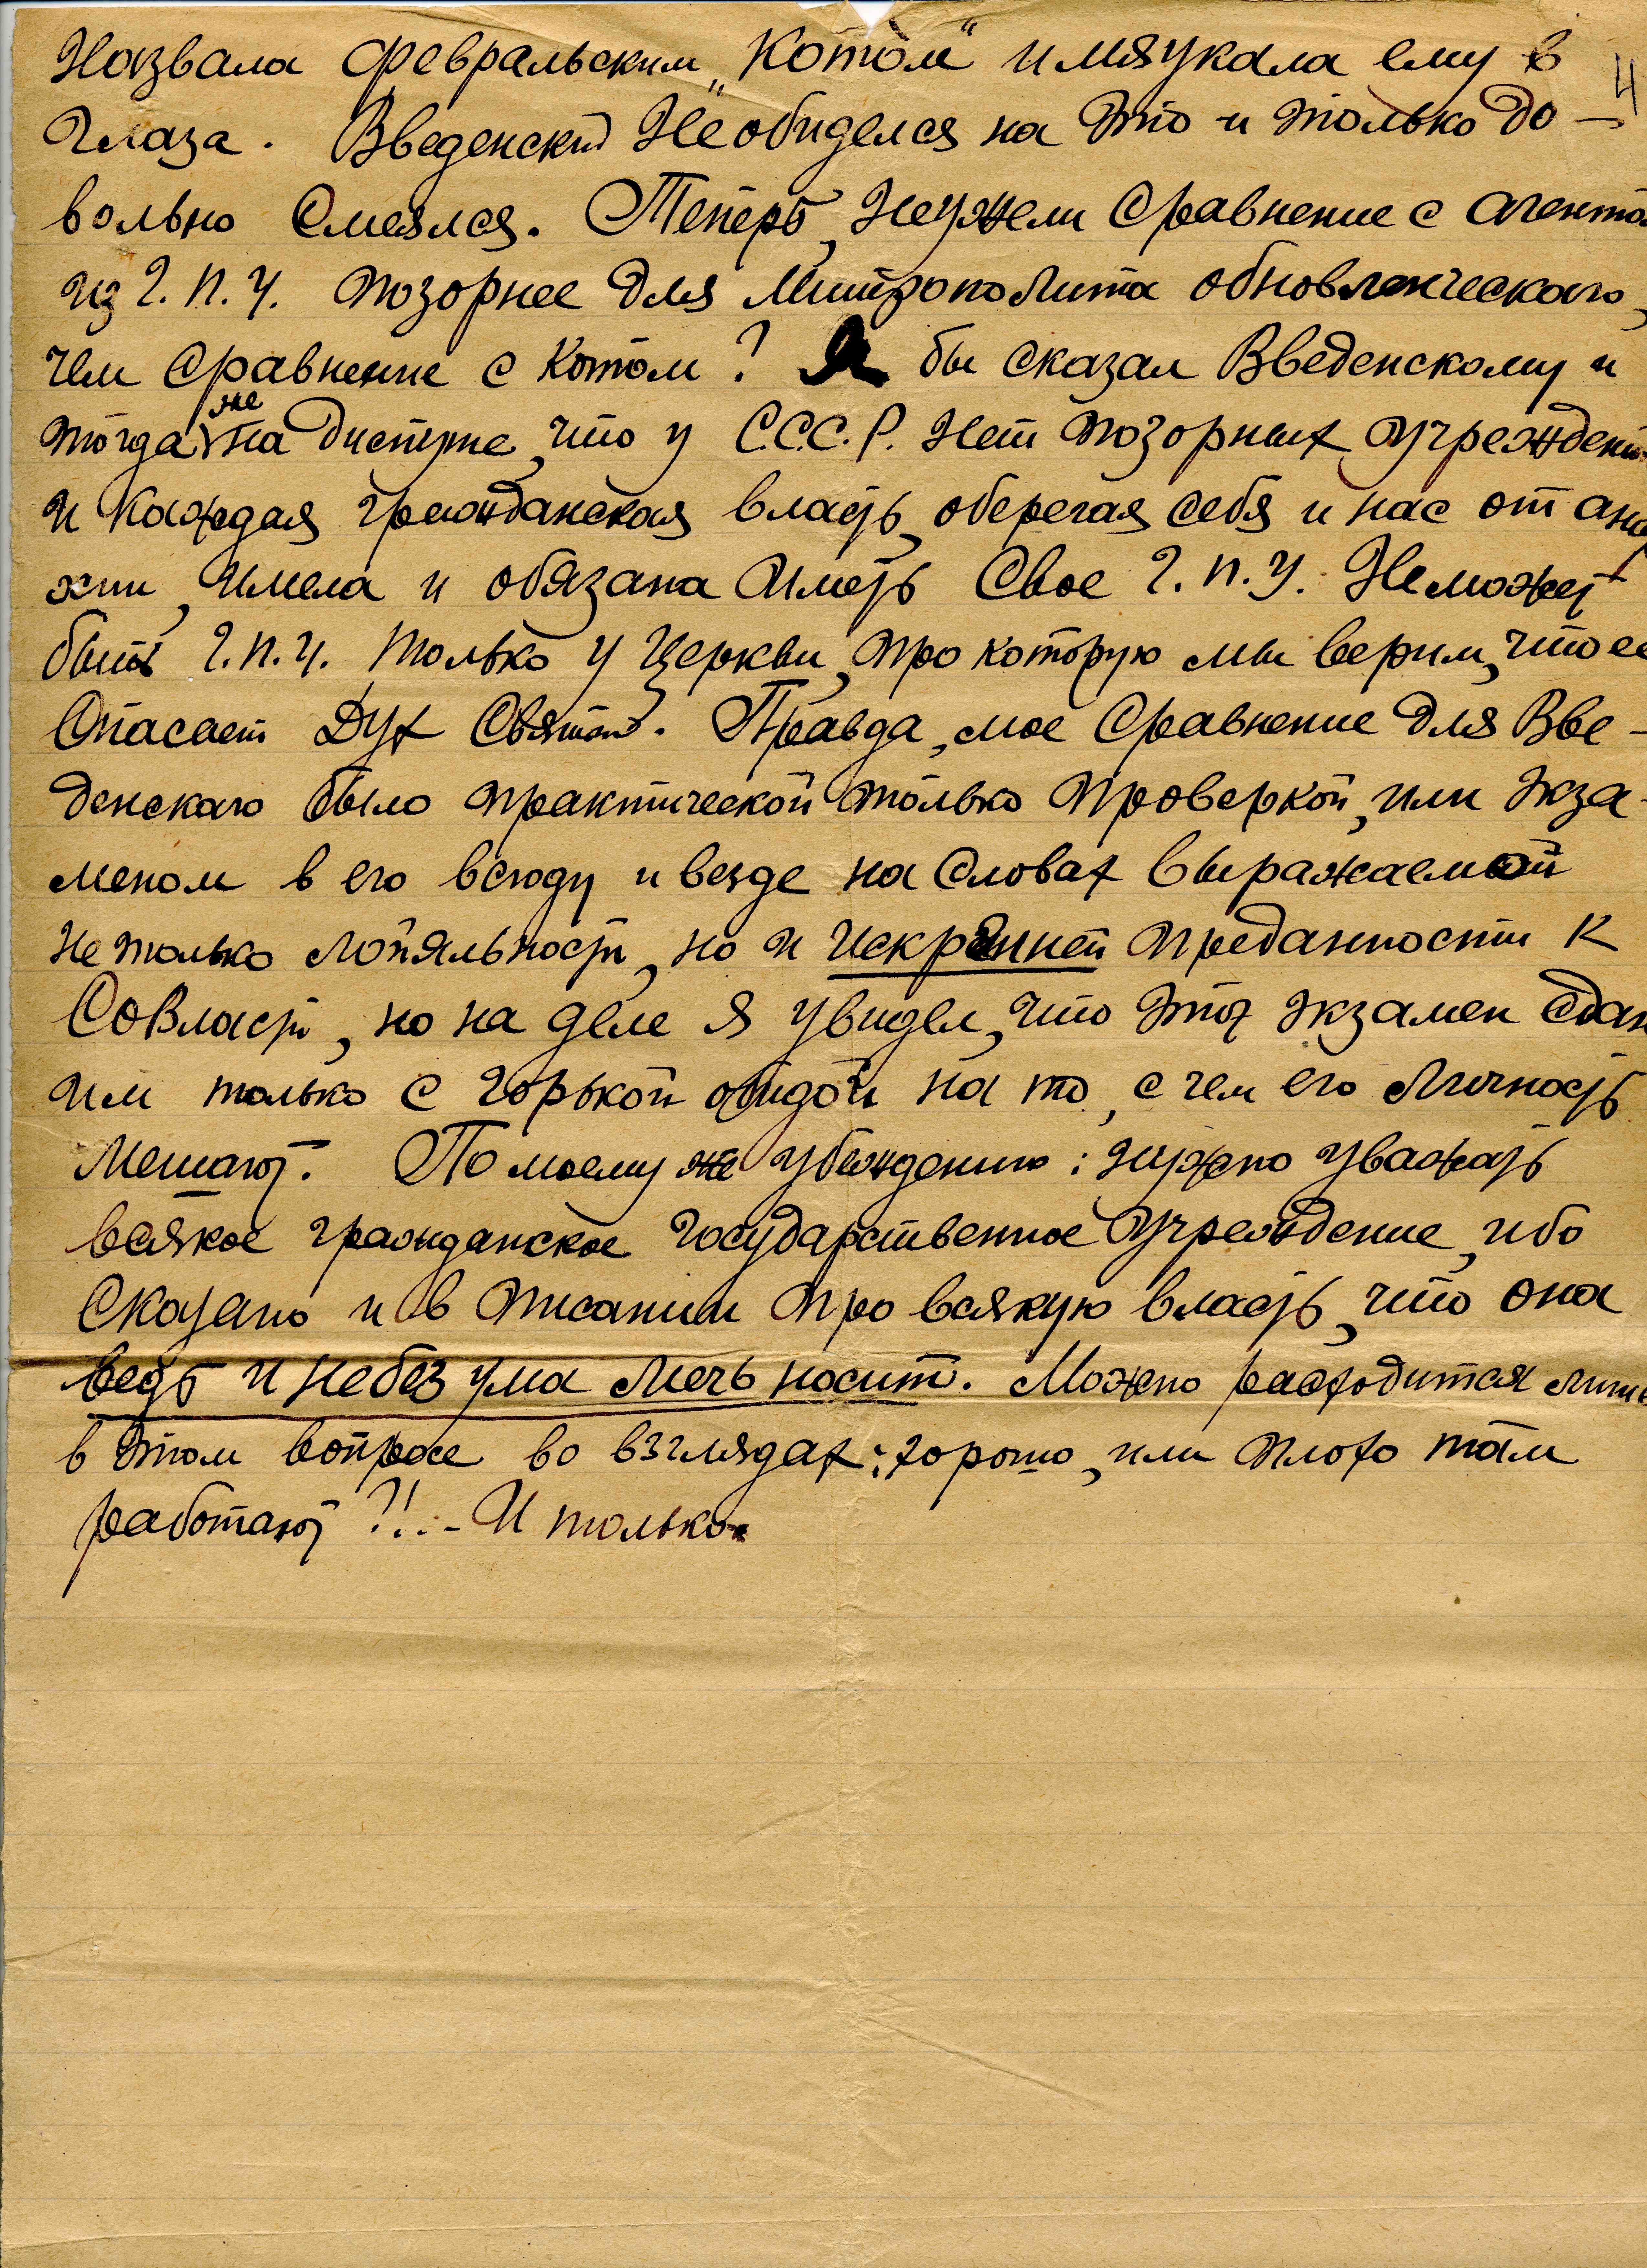 Назвала февральским „Котом“ и мяукала ему в 4
Глаза. Введенский Не обиделся на это и только до-
вольно Смеялся. Теперь, Неужели Сравнение с Агенто
из Г.П.У. позорнее для Митрополита обновленческаго,
чем Сравнение с Котом? Я бы Сказал Введенскому и
тогда же на диспуте, что у С.С.С.Р. Нет позорных учрежден
и Каждая гражданская власть, оберегая Себя и нас от ана
хии, Имела и обязана Иметь Свое Г.П.У. Не может
быть Г.П.У. только у Церкви, про которую мы верим, что ее
Спасает Дух Святой. Правда, мое Сравнение для Вве-
денскаго было практической только проверкой, или Экза-
меном в его всюду и везде на Словах выражаемой
Не только лойяльности, но и Искренней преданности К
СоВласти, но на деле Я увидел, что Этот Экзамен Сдан
им только с горькой обидой на то, с чем его Личность
Мешают. По моему же убеждению: нужно уважать
всякое гражданское Государственное учреждение, ибо
Сказано и в писании про всякую власть, что она
ведь и не без ума мечь носит. Можно расходится лишь
в этом вопросе во взглядах: хорошо, или плохо там
работают?!..- И только.